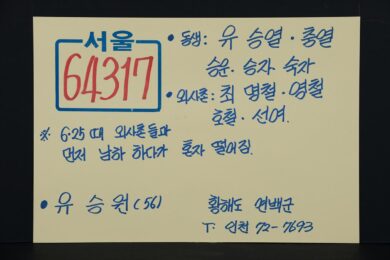 서울
64317
• 동생: 유 승열 · 종열
승운 · 승자 숙자
• 외사촌: 최 명철 · 영철
호철 · 선여.
※ 6·25 때 외사촌들과
먼저 남하 하다가 혼자 떨어짐.
• 유 승원 (56)
황해도 연백군
T. 인천 72-7693